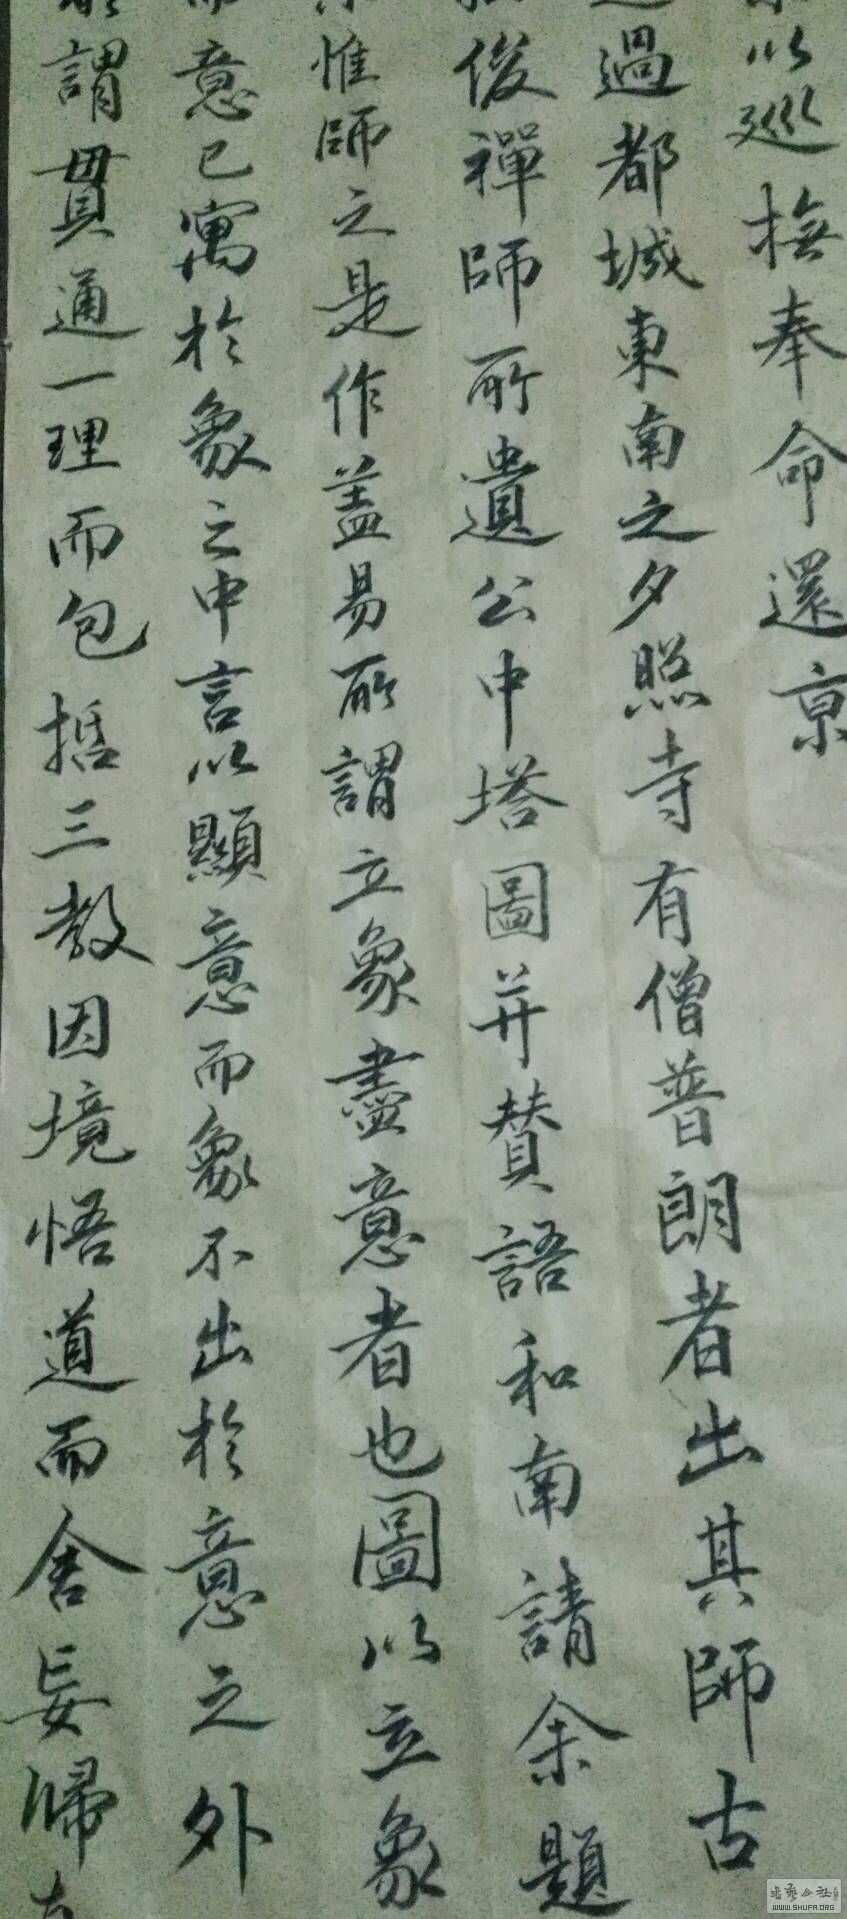 以巡撫奉命還京
過都城東南之夕照寺有僧普朗者出其師古
俊禪師所遺公中塔圖并赞語和南請余題
惟師之是作蓋易所謂立象盡意者也圖以立象
而意已寓於象之中言以顯意而象不出於意之外
謂貫通一理而包括三教因境悟道而舍妄歸
书艺公社
WWW.SHUFA.ORG